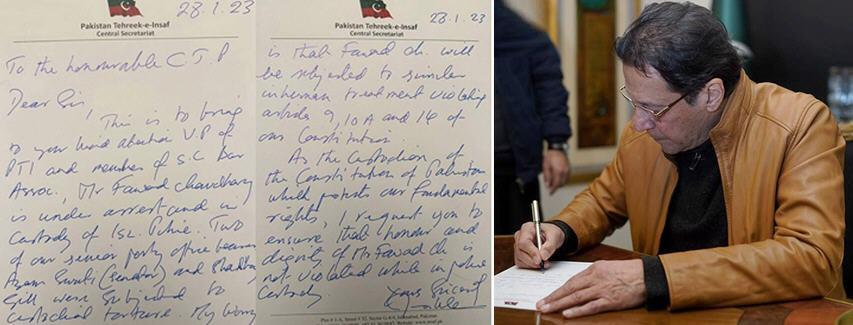 28.1.23
Pakistan Tehreek-e-Insaf
Central Secretariat
To the honourable C J P
Dear Sir,
This is to bring
to your kind attention V.P of
PTI and member of S.C bar
Assoc, Mr Fawad Chaudhary
is under arrest and in
custody of Isl. Police. Two
of our senior party office bearers
Azam Swati (Senator) and Shahbaz
Gill were subjected to
custodial torture. My worry
28.1.23
Pakistan Tehreek-e-Insaf
Central Secretariat
is that Fawad ch. will
be subjected to similar
inhuman treatment violating
article 9, 10A and 14 of
our Constitution.
As the custodian of
the Constitution of Pakistan
which protects our fundamental
rights, I request you to
ensure that honour and
dignity of Mr Fawad Ch is
not violated while in police
custody.
Yours Sincerely